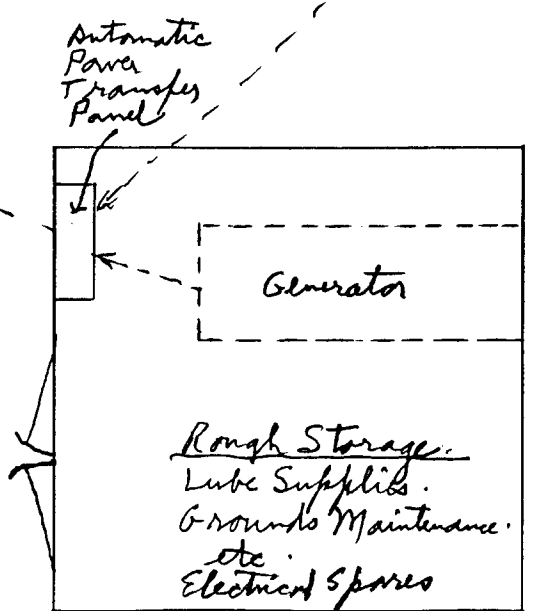 Automatic
Power
Transfer
Panel
Generator
Rough Storage.
Lube Supplies.
Grounds Maintenance.
etc.
Electrical Spares